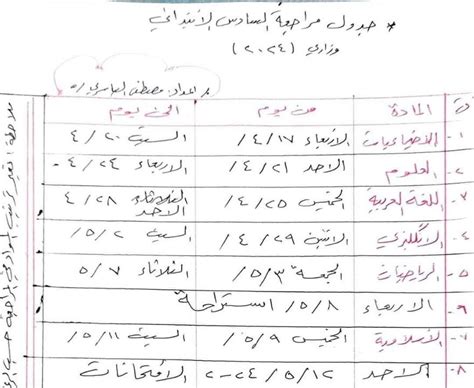 * جدول مراجعة السادس الابتدائي
وزاري (٢٠٢٤)
اعداد: مصطفى العامري
ت المادة من يوم الى يوم
١- الاجتماعيات الاربعاء ٤/١٧ السبت ٤/٢٠
٢- العلوم الاحد ٤/٢١ الاربعاء ٤/٢٤
٣- اللغة العربية الخميس ٤/٢٥ الاحد ٤/٢٨
٤- الانگليزي الاثنين ٤/٢٩ السبت ٥/٢
٥- الرياضيات الجمعة ٥/٣ الثلاثاء ٥/٧
٦- الاربعاء ٥/٨ استراحة
٧- الأسلامية الخميس ٥/٩ السبت ٥/١١
٨- الاحد ٥/١٢-٢٠٢٤ الامتحانات
ملاحظة ترتيب المواد في المراجعة حسب